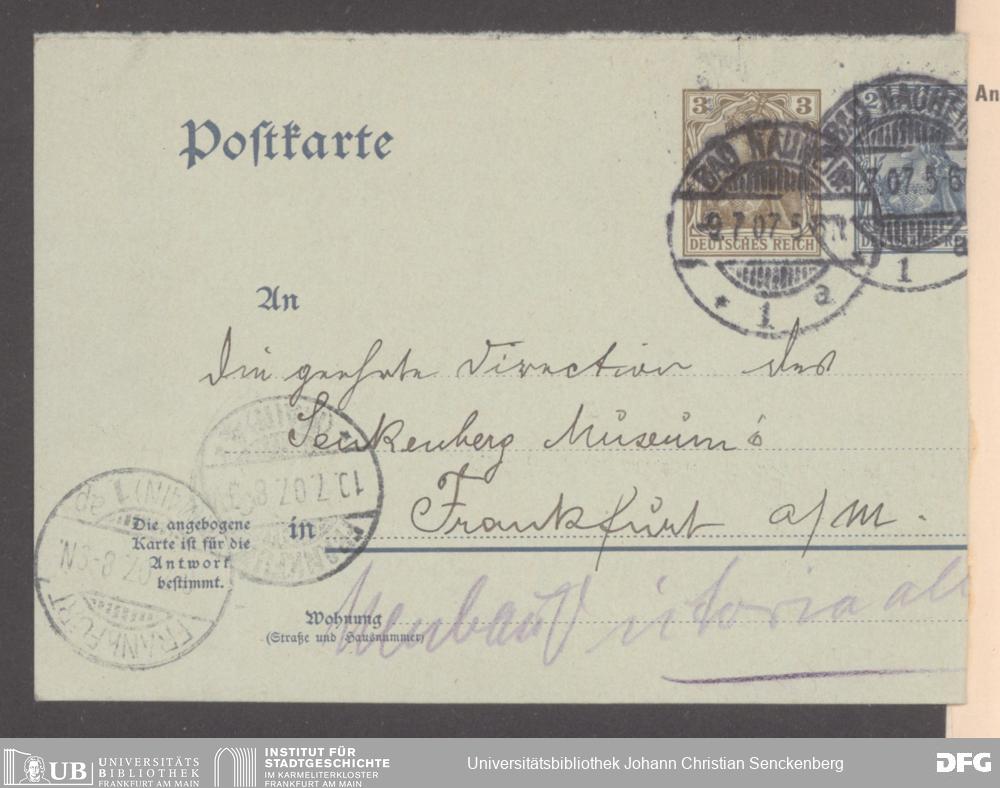 Postkarte
3 3
DEUTSCHES REICH
2
BAD NAUHEIM
9.7.07.5-6N.
* 1 a
BAD NAUHEIM
7.07.5-6
1 a
An
An
Die geehrte Direction des
Senkenberg Museum's
in Frankfurt a/M.
10.7.07. 8-9
FRANKFURT
Die angebogene
Karte ist für die
Antwort
bestimmt.
Wohnung
(Straße und Hausnummer)
Neubau Victoria all
UB UNIVERSITÄTS
BIBLIOTHEK
FRANKFURT AM MAIN
INSTITUT FÜR
STADTGESCHICHTE
IM KARMELITERKLOSTER
FRANKFURT AM MAIN
Universitätsbibliothek Johann Christian Senckenberg
DFG